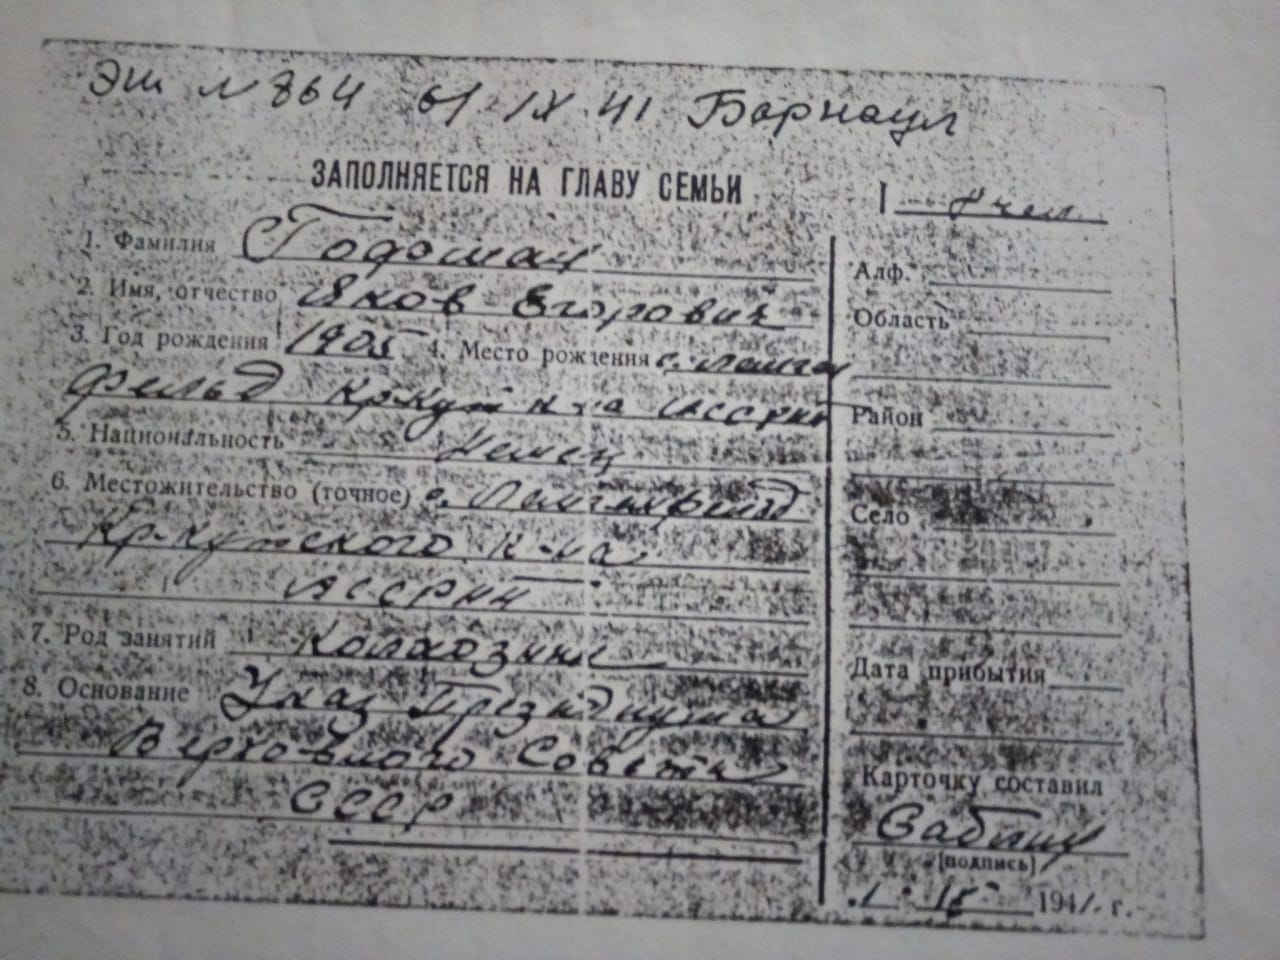 Эш № 864 6/IX 41 Барнаул
ЗАПОЛНЯЕТСЯ НА ГЛАВУ СЕМЬИ
1. Фамилия
2. Имя, отчество Яков Егорович
3. Год рождения 1905 4. Место рождения с. Ланген
фельд Кр-Кут к-на АССРНП
5. Национальность Немец
6. Местожительство (точное) с. Лангенфельд
Кр-Кутского к-на
АССРНП
7. Род занятий Колхозник
8. Основание Указ Президиума
Верховного Совета
СССР
I
Алф.
Область
Район
Село
Дата прибытия
Карточку составил
(подпись)
1941 г.